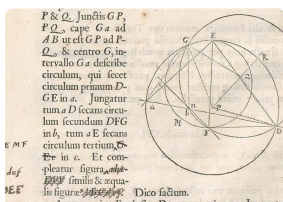 P & Q. Junctis GP,
PQ, cape Ga ad
AB ut est GP ad P-
Q, & centro G, in-
tervallo Ga describe
circulum, qui secet
circulum primum D-
GE in a. Jungatur
tum aD secans circu-
lum secundum DFG
in b, tum aE secans
circulum tertium
Et in c. Et com-
pleatur figura
similis & æqua-
lis figuræ Dico factum.
EMF
def
DEF
G
E
R
N
a
b
n
P
M
F
D